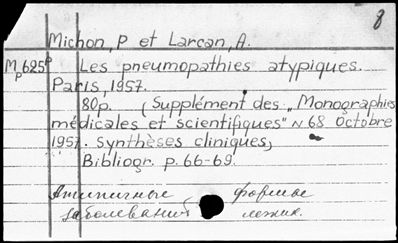 8
Michon, P et Larcan, A.
Mp625p Les pneumopathies atypiques.
Paris, 1957.
80p. (Supplément des „Monographies
médicales et scientifiques" N 68 Octobre
1957. Synthèses cliniques)
Bibliogr. p. 66-69.
Атипичные формы
заболевания легких.